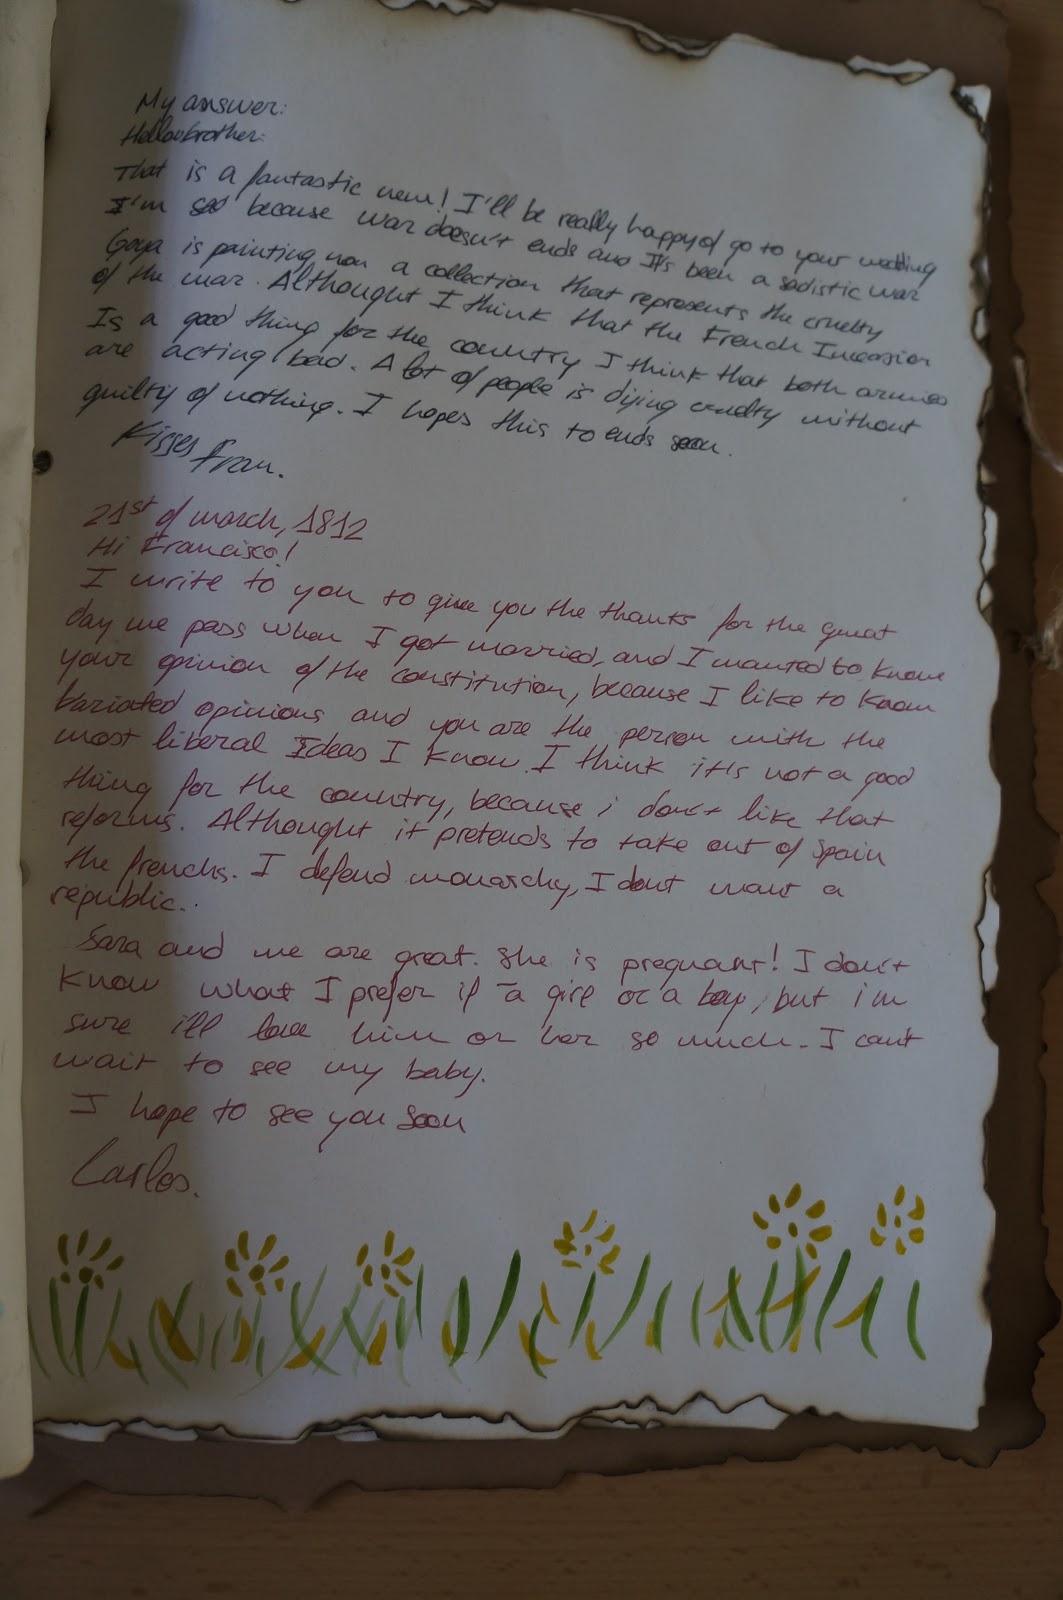 My answer:
Hello brother:
That is a fantastic new! I'll be really happy of go to your wedding
I'm sad because war doesn't ends and It's been a sadistic war
Goya is painting now a collection that represents the cruelty
of the war. Althought I think that the French Invasion
Is a good thing for the country I think that both armies
are acting bad. A lot of people is dijing cruelty without
guilty of nothing. I hopes this to ends soon.
Kisses Fran.
21st of march, 1812
Hi Francisco!
I write to you to give you the thanks for the great
day we pass when I got married, and I wanted to know
your opinion of the constitution, because I like to know
bariated opinions and you are the person with the
most liberal Ideas I know. I think it's not a good
thing for the country, because i don't like that
reforms. Althought it pretends to take out of Spain
the frenchs. I defend monarchy, I dont want a
republic.
Sara and me are great. She is pregnant! I don't
know what I prefer if a girl or a boy, but i'm
sure i'll love him or her so much. I can't
wait to see my baby.
I hope to see you soon
Carlos.